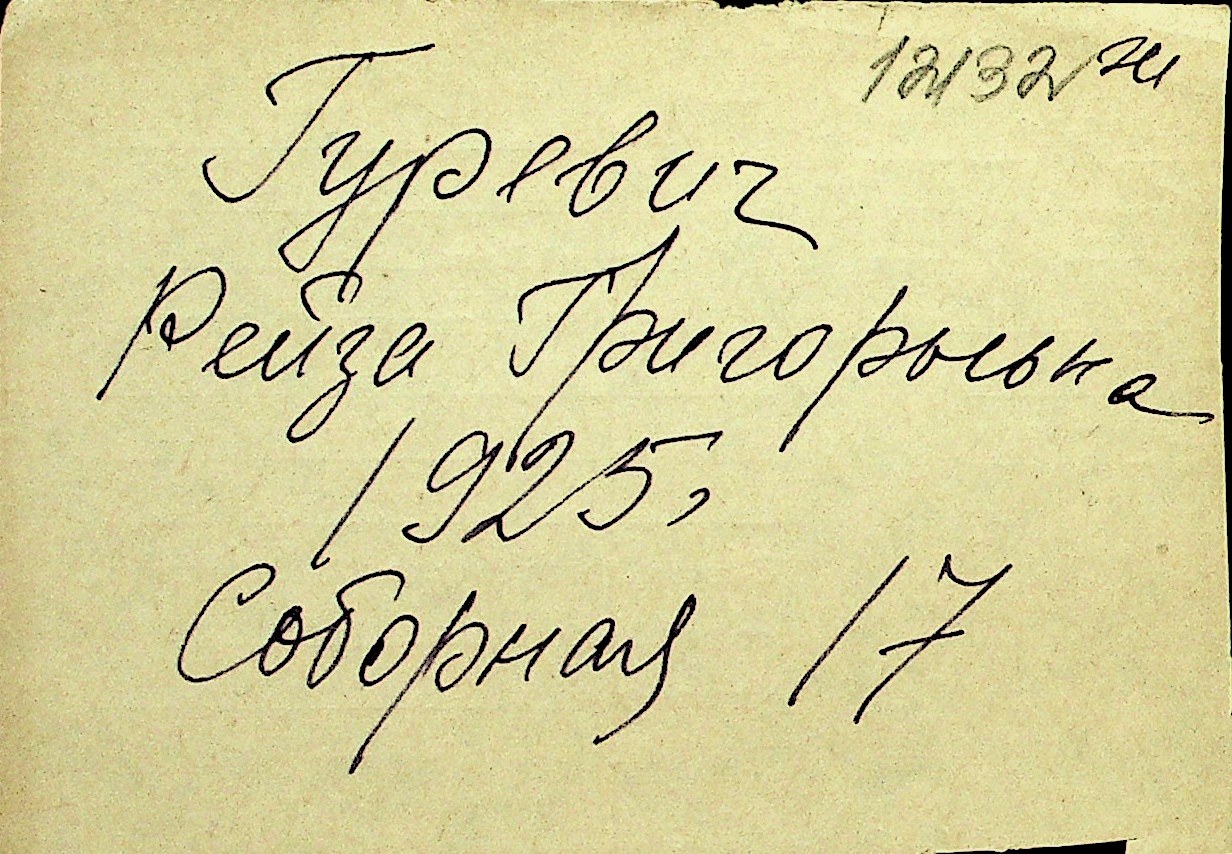 12132 ж
Гуревич
Рейза Григорьевна
1925,
Соборная 17